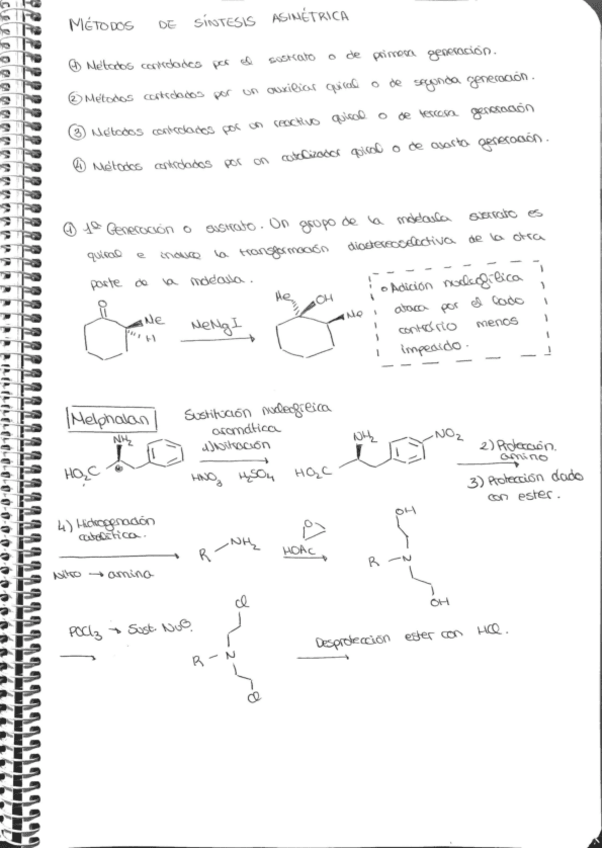 MÉTODOS DE SÍNTESIS ASIMÉTRICA
① Métodos controlados por el sustrato o de primera generación.
② Métodos controlados por un auxiliar quiral o de segunda generación.
③ Métodos controlados por un reactivo quiral o de tercera generación
④ Métodos controlados por un catalizador quiral o de cuarta generación.
① 1ª Generación o sustrato. Un grupo de la molécula sustrato es
quiral e induce la transformación diastereoselectiva de la otra
parte de la molécula.
O
Me
H
MeMgI
Me
OH
Me
• Adición nucleofílica
ataca por el lado
contrario menos
impedido.
Melphalan
Sustitución nucleofílica
aromática
NH₂
HO₂C
1) Nitración
HNO₃ H₂SO₄
NH₂
HO₂C
NO₂
2) Protección
amino
3) Protección ácido
con ester.
4) Hidrogenación
catalítica.
Nitro → amina
R
NH₂
O
HOAc
OH
R - N
OH
POCl₃ → Sust. Nu⊖.
Cl
R - N
Cl
Desprotección ester con HCl.